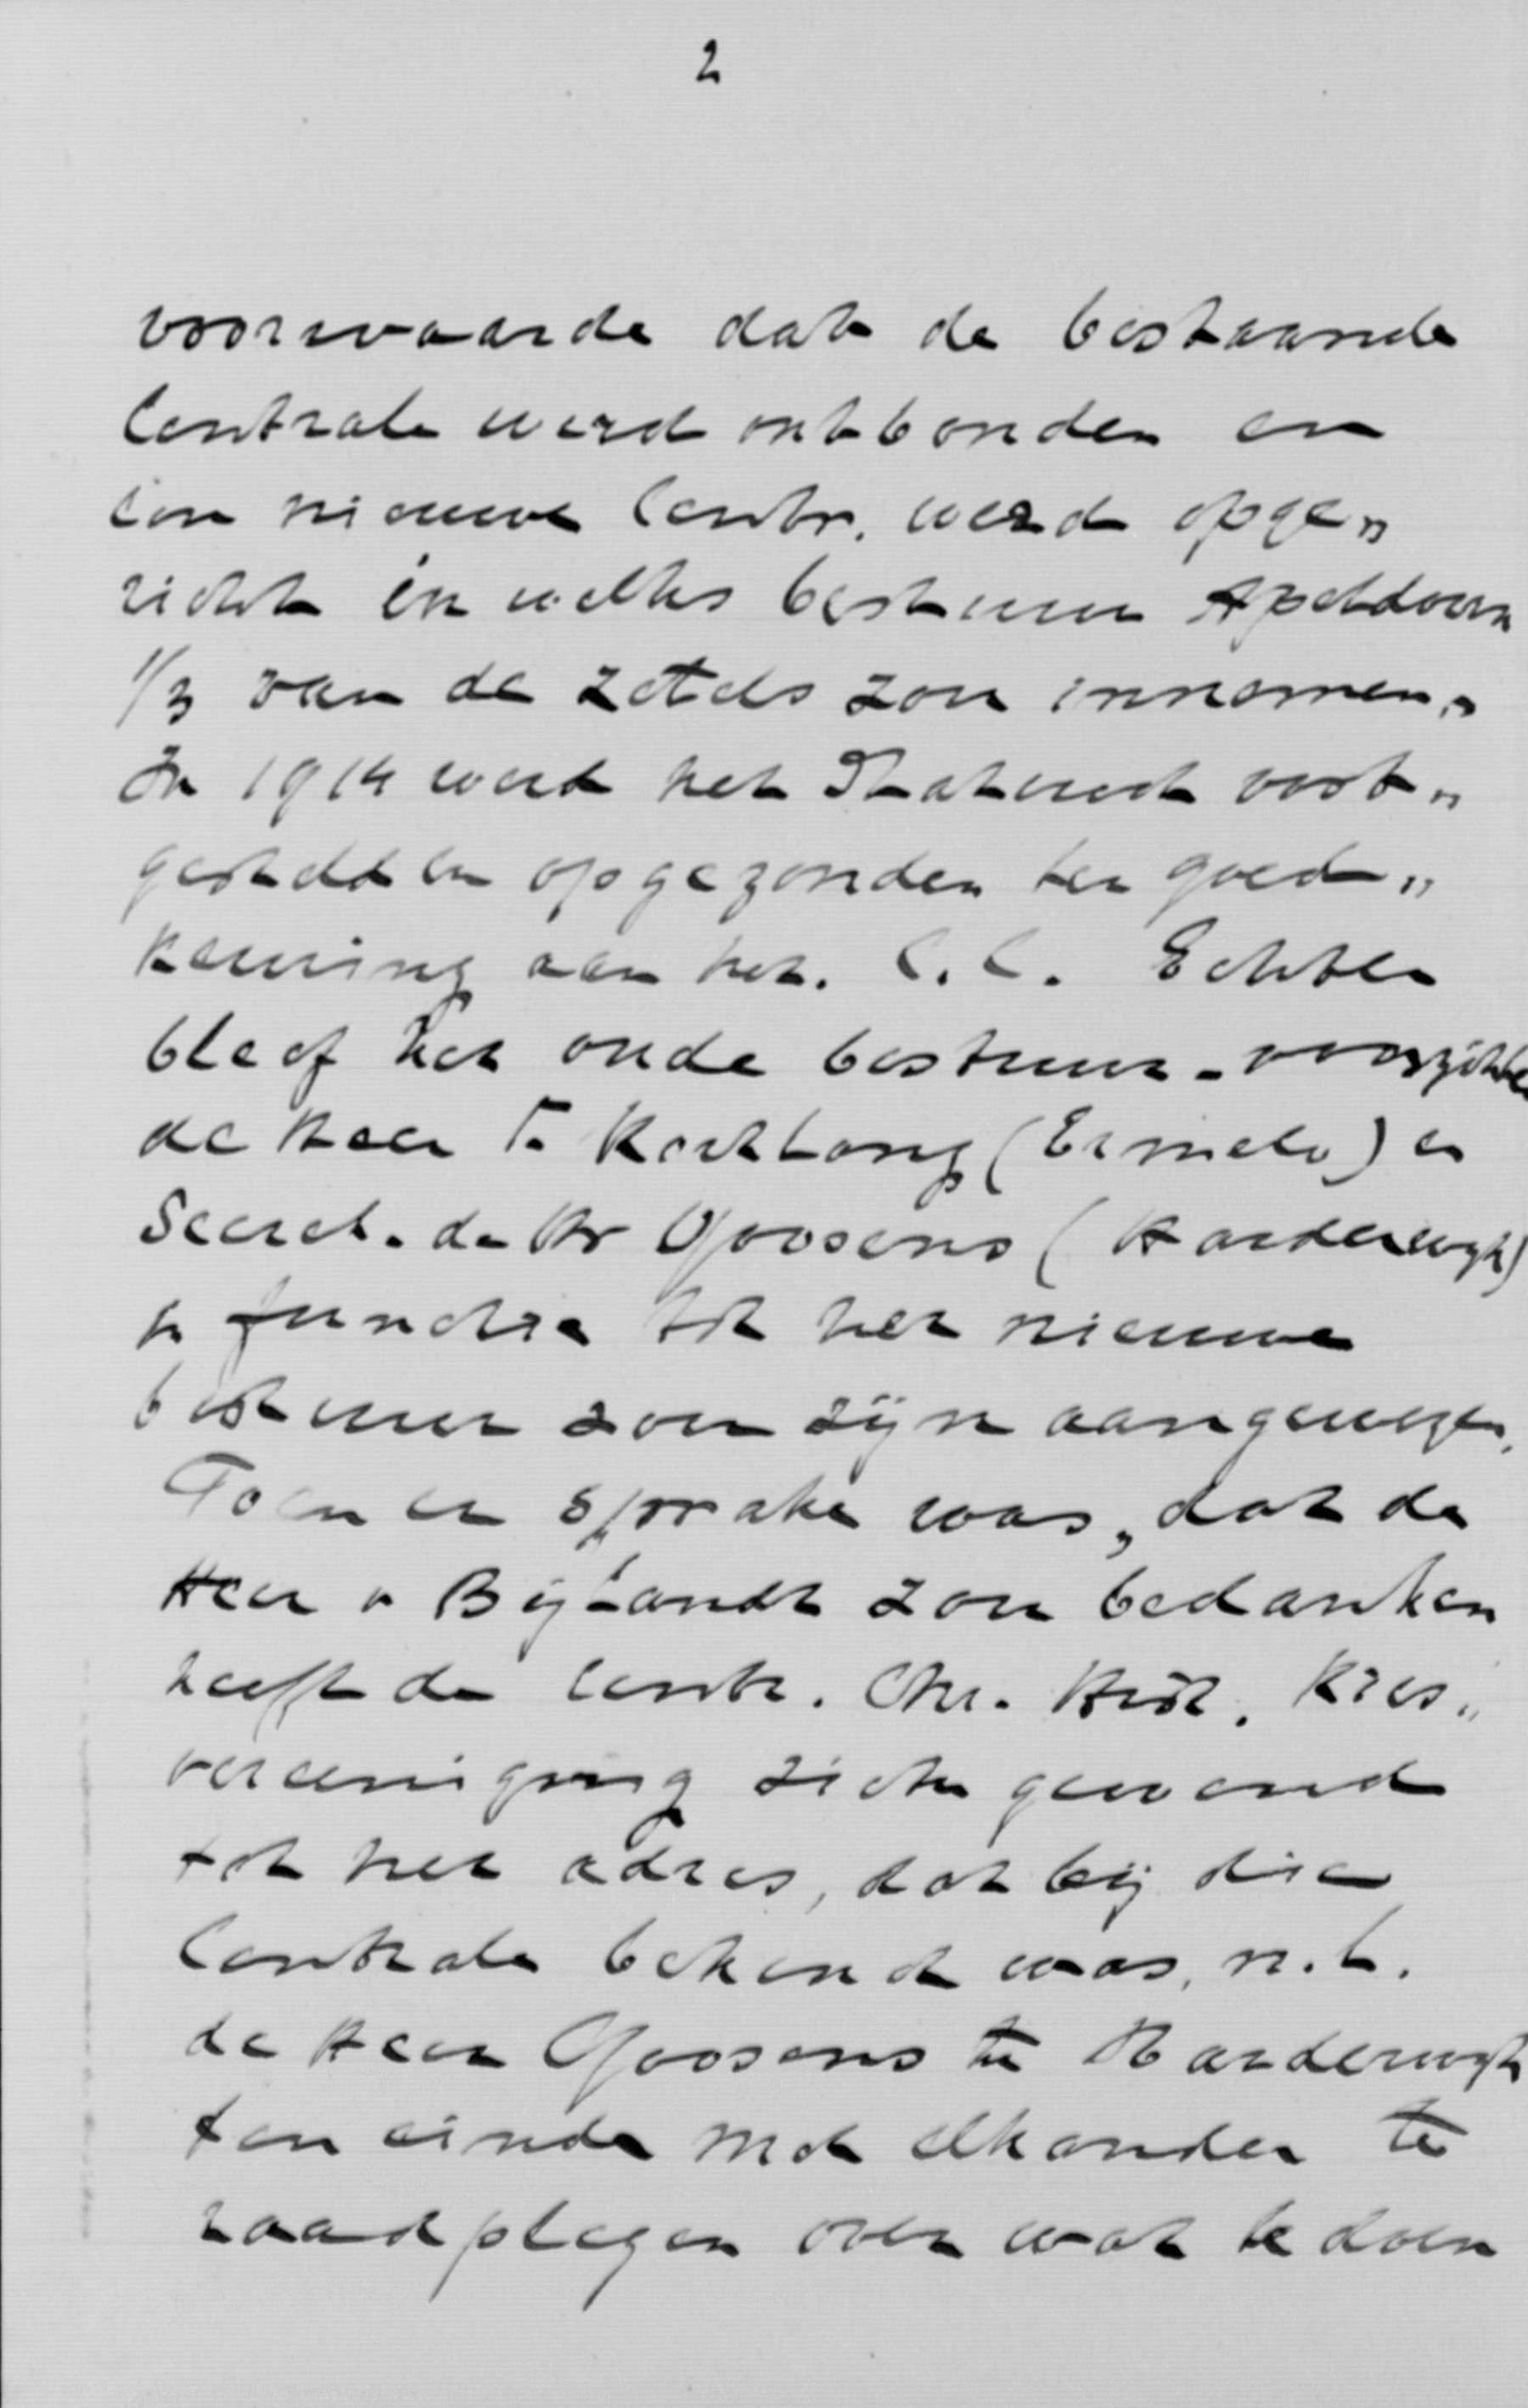 2
voorwaarde dat de bestaande
Centrale werd ontbonden en
een nieuwe Centr. werd opge„
richt in welks bestuur Apeldoorn
1/3 van de zetels zou innemen.
In 1914 werd het Statuut vast„
gesteld en opgezonden ter goed„
keuring aan het. C.C. Echter
bleef het oude bestuur - voorzitter
de Heer F. (Ermelo) en
Secret. de Hr Goosens (Harderwijk)
in functie tot het nieuwe
bestuur zou zijn aangewezen.
Toen er sprake was, dat de
Heer v Bijlandt zou bedanken
heeft de Centr. Chr. Hist. Kies„
vereeniging zich gewend
tot het adres, dat bij die
Centrale bekend was, n.l.
de Heer Goosens te Harderwijk
ten einde met elkander te
raadplegen over wat te doen